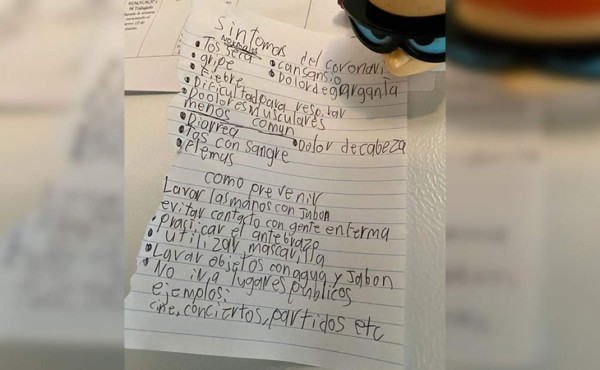 sintomas del coronavi
normales
• Tos seca • cansansio
• gripe • Dolor de garganta
• Fiebre
• Dificultad para respirar
• Doolores musculares
menos comun
• Diarrea • Dolor de cabeza
• Tos con sangre
• flemas
como prevenir
Lavar las manos con Jabon
evitar contacto con gente enferma
• prasticar el antebrazo
• utilizar mascarilla
• Lavar objetos con agua y Jabon
• No ir a lugares publicos
ejemplos:
cine, conciertos, partidos etc